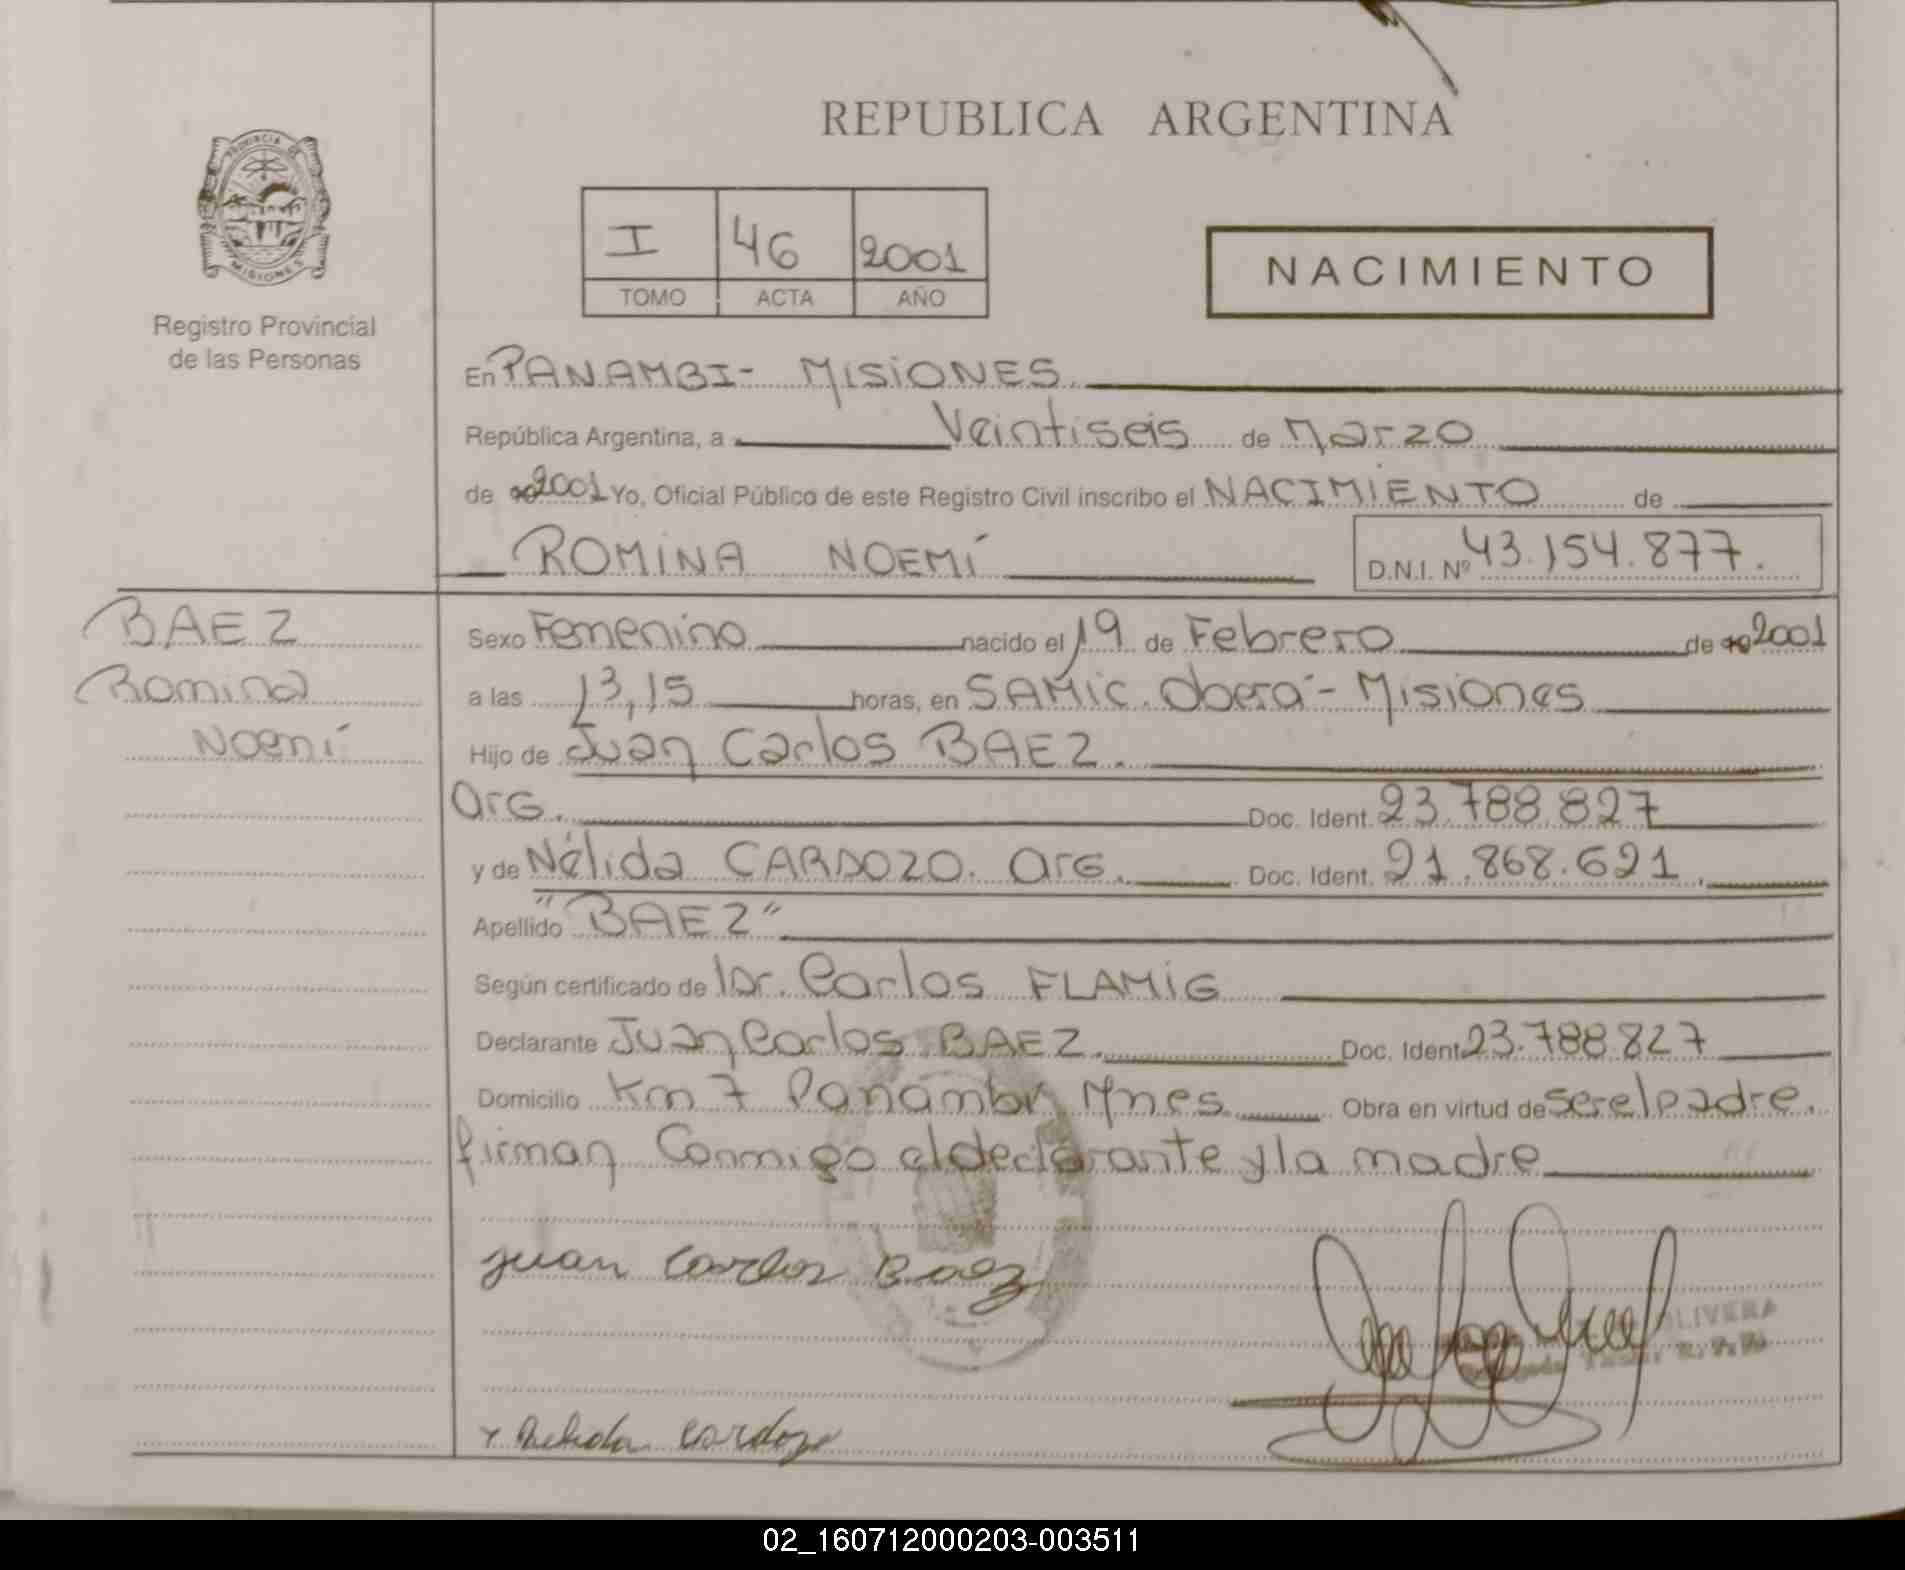 REPUBLICA ARGENTINA
PROVINCIA DE
MISIONES
Registro Provincial
de las Personas
I 46 2001
TOMO ACTA AÑO
NACIMIENTO
En PANAMBI- MISIONES
República Argentina, a Veintiseis de Marzo
de 2001 Yo, Oficial Público de este Registro Civil inscribo el NACIMIENTO de
ROMINA NOEMÍ
D.N.I. Nº 43.154.877.
BAEZ
Romina
Noemí
Sexo Femenino nacido el 19 de Febrero de 2001
a las 13,15 horas, en SAMIC. Oberá - Misiones
Hijo de Juan Carlos BAEZ.
Arg. Doc. Ident. 23.788.827
y de Nélida CARDOZO. Arg. Doc. Ident. 21.868.621.
Apellido "BAEZ"
Según certificado de Dr. Carlos FLAMIG
Declarante Juan Carlos BAEZ. Doc. Ident. 23.788.827
Domicilio Km 7 Panambi Mnes. Obra en virtud de ser el padre.
firman Conmigo el declarante y la madre
Juan Carlos Baez
OLIVERA
Cardozo
02_160712000203-003511